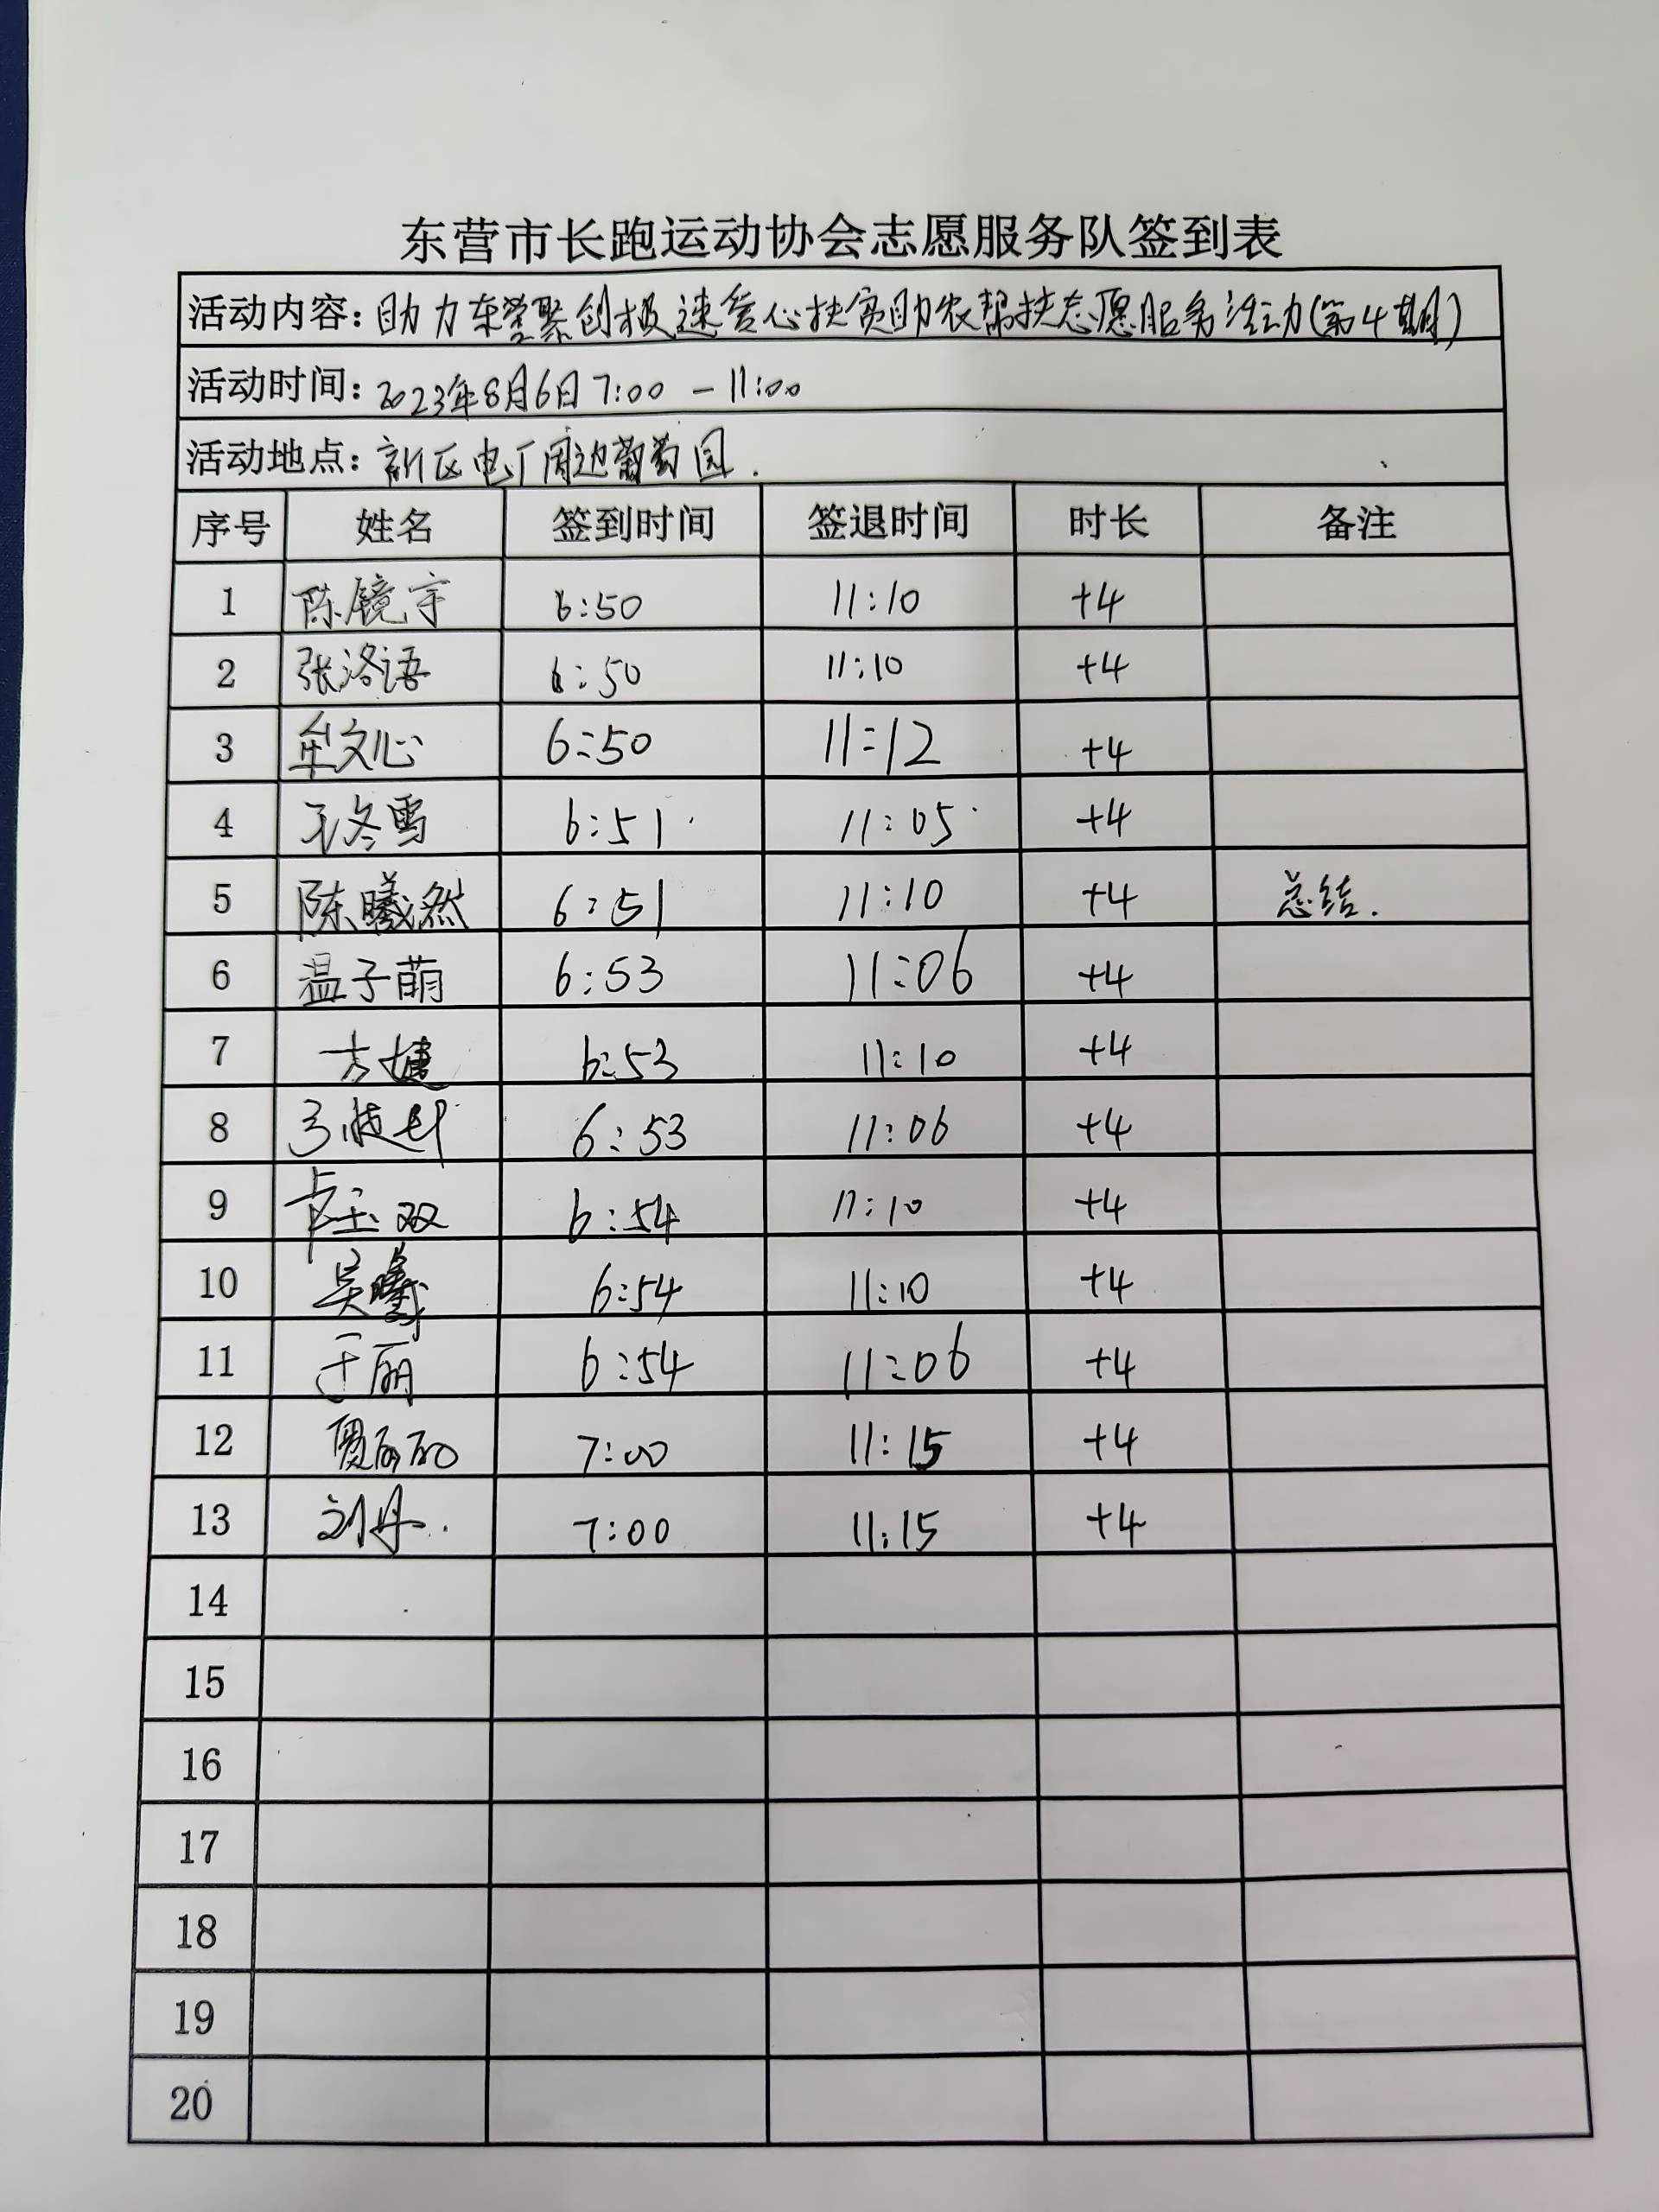 东营市长跑运动协会志愿服务队签到表
活动内容：助力东营聚创极速爱心扶贫助农帮扶志愿服务活动(第4期)
活动时间：2023年8月6日7:00－11:00
活动地点：新区电厂周边葡萄园.
序号 姓名 签到时间 签退时间 时长 备注
1 陈镜宇 6:50 11:10 +4
2 张洛语 6:50 11:10 +4
3 牟文心 6:50 11:12 +4
4 王冬雪 6:51 11:05 +4
5 陈曦然 6:51 11:10 +4 总结.
6 温子萌 6:53 11:06 +4
7 6:53 11:10 +4
8 6:53 11:06 +4
9 双 6:54 11:10 +4
10 吴曦 6:54 11:10 +4
11 于丽 6:54 11:06 +4
12 7:00 11:15 +4
13 刘丹. 7:00 11:15 +4
14
15
16
17
18
19
20